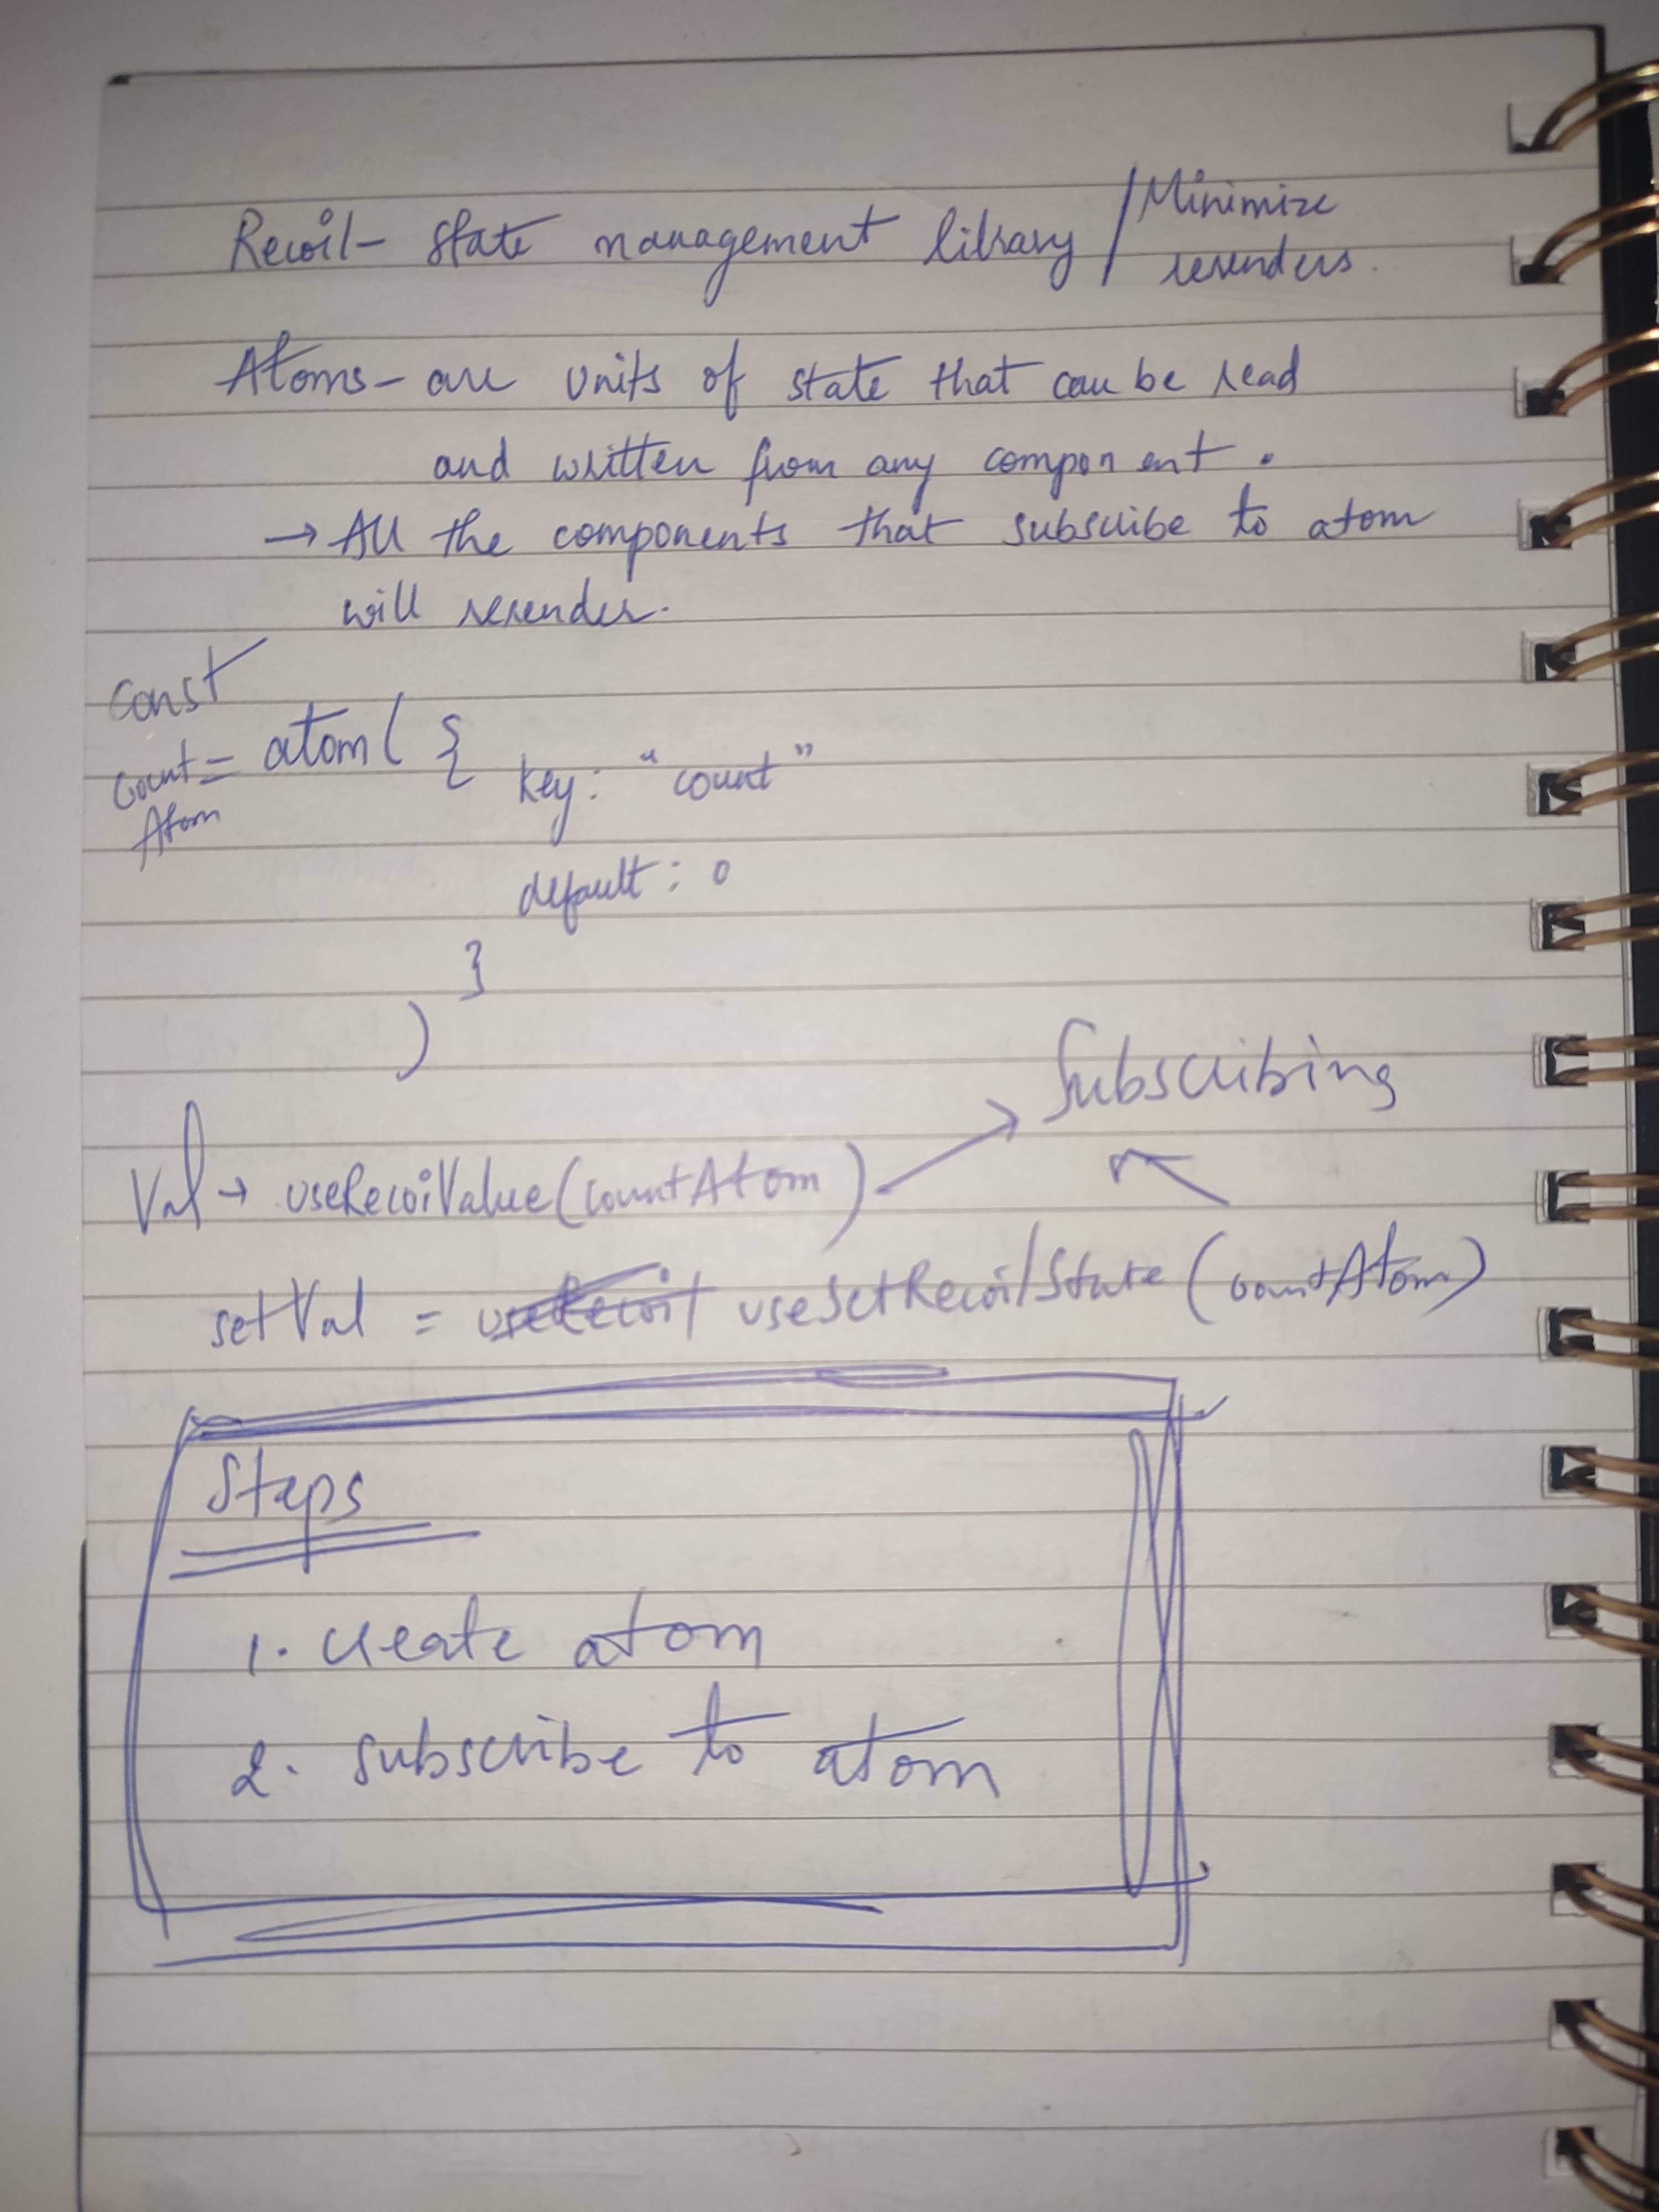 Recoil - State management library / Minimize
rerenders.
Atoms - are units of state that can be read
and written from any component.
→ All the components that subscribe to atom
will rerender.
const
count = atom ( {
Atom
key: "count"
default: 0
}
)
Subscribing
Val → useRecoiValue(countAtom)
setVal = useRecoil useSetRecoilState (countAtom)
Steps
1. create atom
2. subscribe to atom